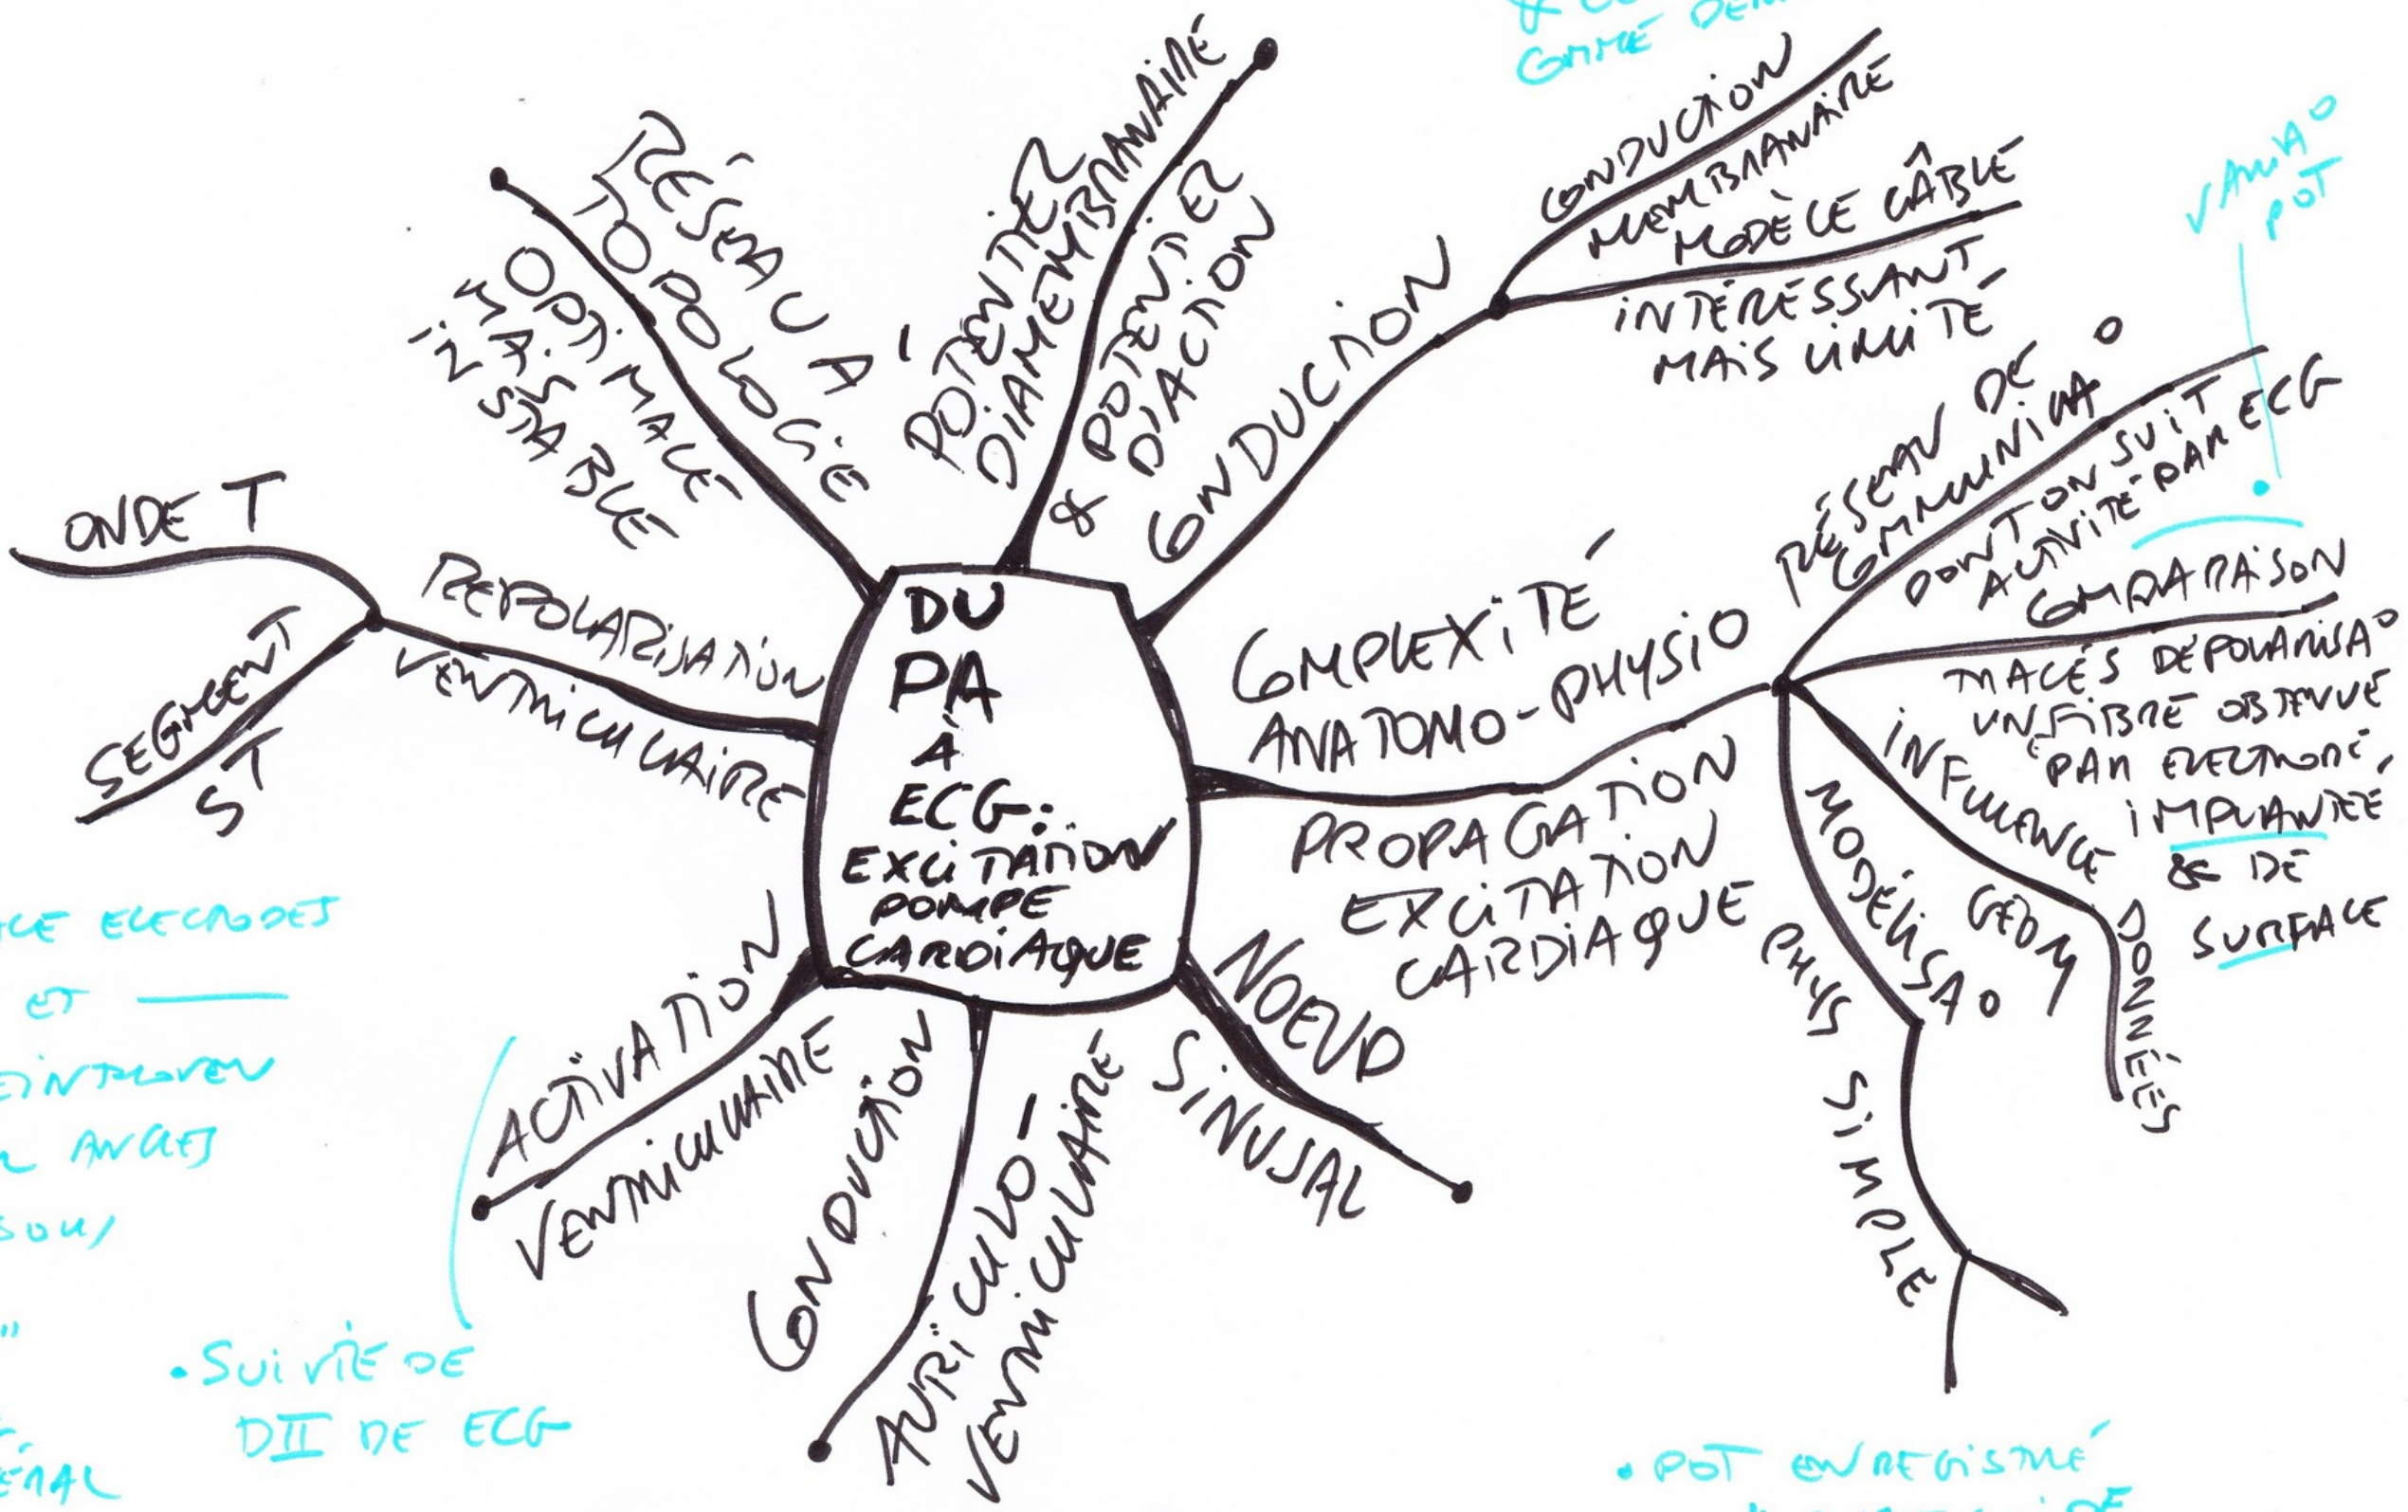 DU
PA
À
ECG:
EXCITATION
POMPE
CARDIAQUE
RÉSEAU À
TOPOLOGIE
OPTIMALE
MAIS
INSTABLE
POTENTIEL
DIAMEMBRANAIRE
& POTENTIEL
D'ACTION
CONDUCTION
CONDUCTION
MEMBRANAIRE
MODÈLE CÂBLE
INTÉRESSANT
MAIS LIMITÉ
COMPLEXITÉ
ANATOMO-PHYSIO
PROPAGATION
EXCITATION
CARDIAQUE
RÉSEAU DE
COMMUNICA°
DONT ON SUIT
ACTIVITÉ PAR ECG
COMPARAISON
TRACÉS DÉPOLARISA°
UNE FIBRE OBTENUE
PAR ELECTRODE
IMPLANTÉE
& DE
SURFACE
INFLUENCE
GÉOM
DONNÉES
MODÉLISA°
PHYS SIMPLE
NOEUD
SINUSAL
CONDUCTION
AURICULO-
VENTRICULAIRE
ACTIVATION
VENTRICULAIRE
REPOLARISATION
VENTRICULAIRE
ONDE T
SEGMENT
ST
VARIA°
POT
ELECRODES
ET
ANGLES
• SUIVIE DE
DII DE ECG
• POT ENREGISTRÉ
DE